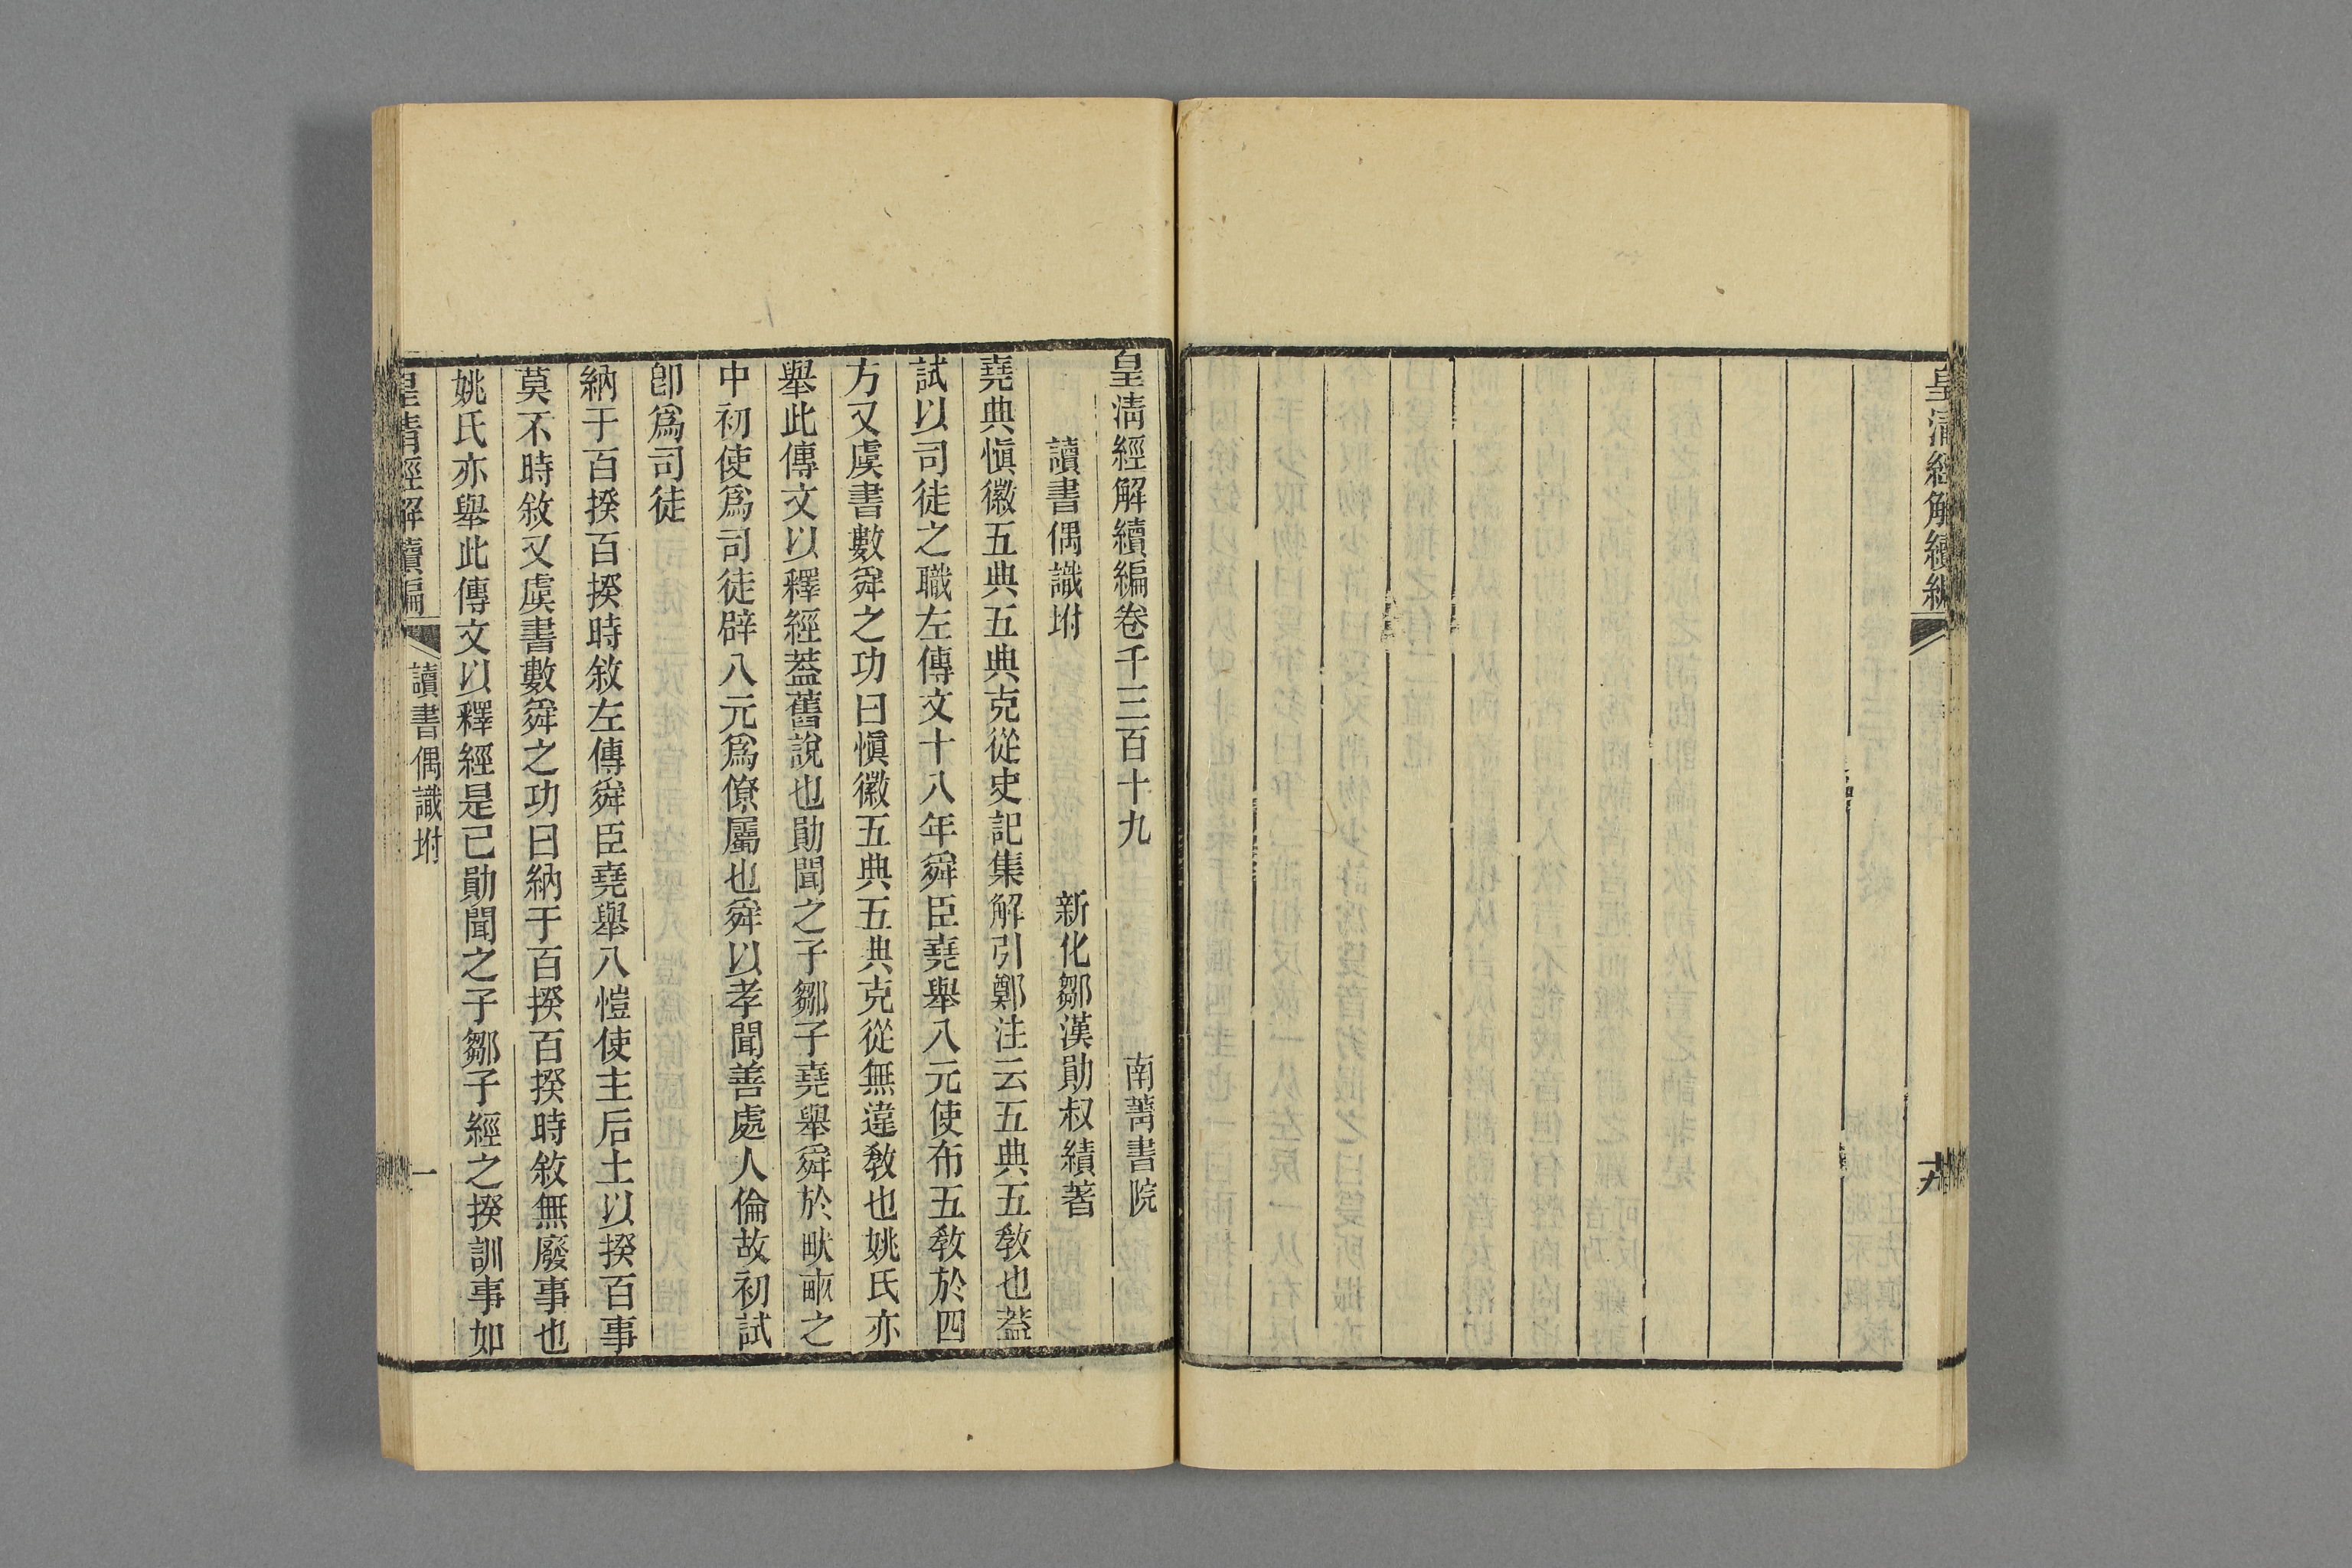 皇清經解續編
皇清經解續編卷千三百十九　南菁書院
讀書偶識坿　新化鄒漢勛叔績著
堯典愼徽五典五典克從史記集解引鄭注云五典五敎也葢
試以司徒之職左傳文十八年舜臣堯舉八元使布五敎於四
方又虞書數舜之功曰愼徽五典五典克從無違敎也姚氏亦
舉此傳文以釋經葢舊說也勛聞之子鄒子堯舉舜於畎畝之
中初使爲司徒辟八元爲僚屬也舜以孝聞善處人倫故初試
卽爲司徒
納于百揆百揆時敘左傳舜臣堯舉八愷使主后土以揆百事
莫不時敘又虞書數舜之功曰納于百揆百揆時敘無廢事也
姚氏亦舉此傳文以釋經是已勛聞之子鄒子經之揆訓事如
皇清經解續編　讀書偶識坿　一